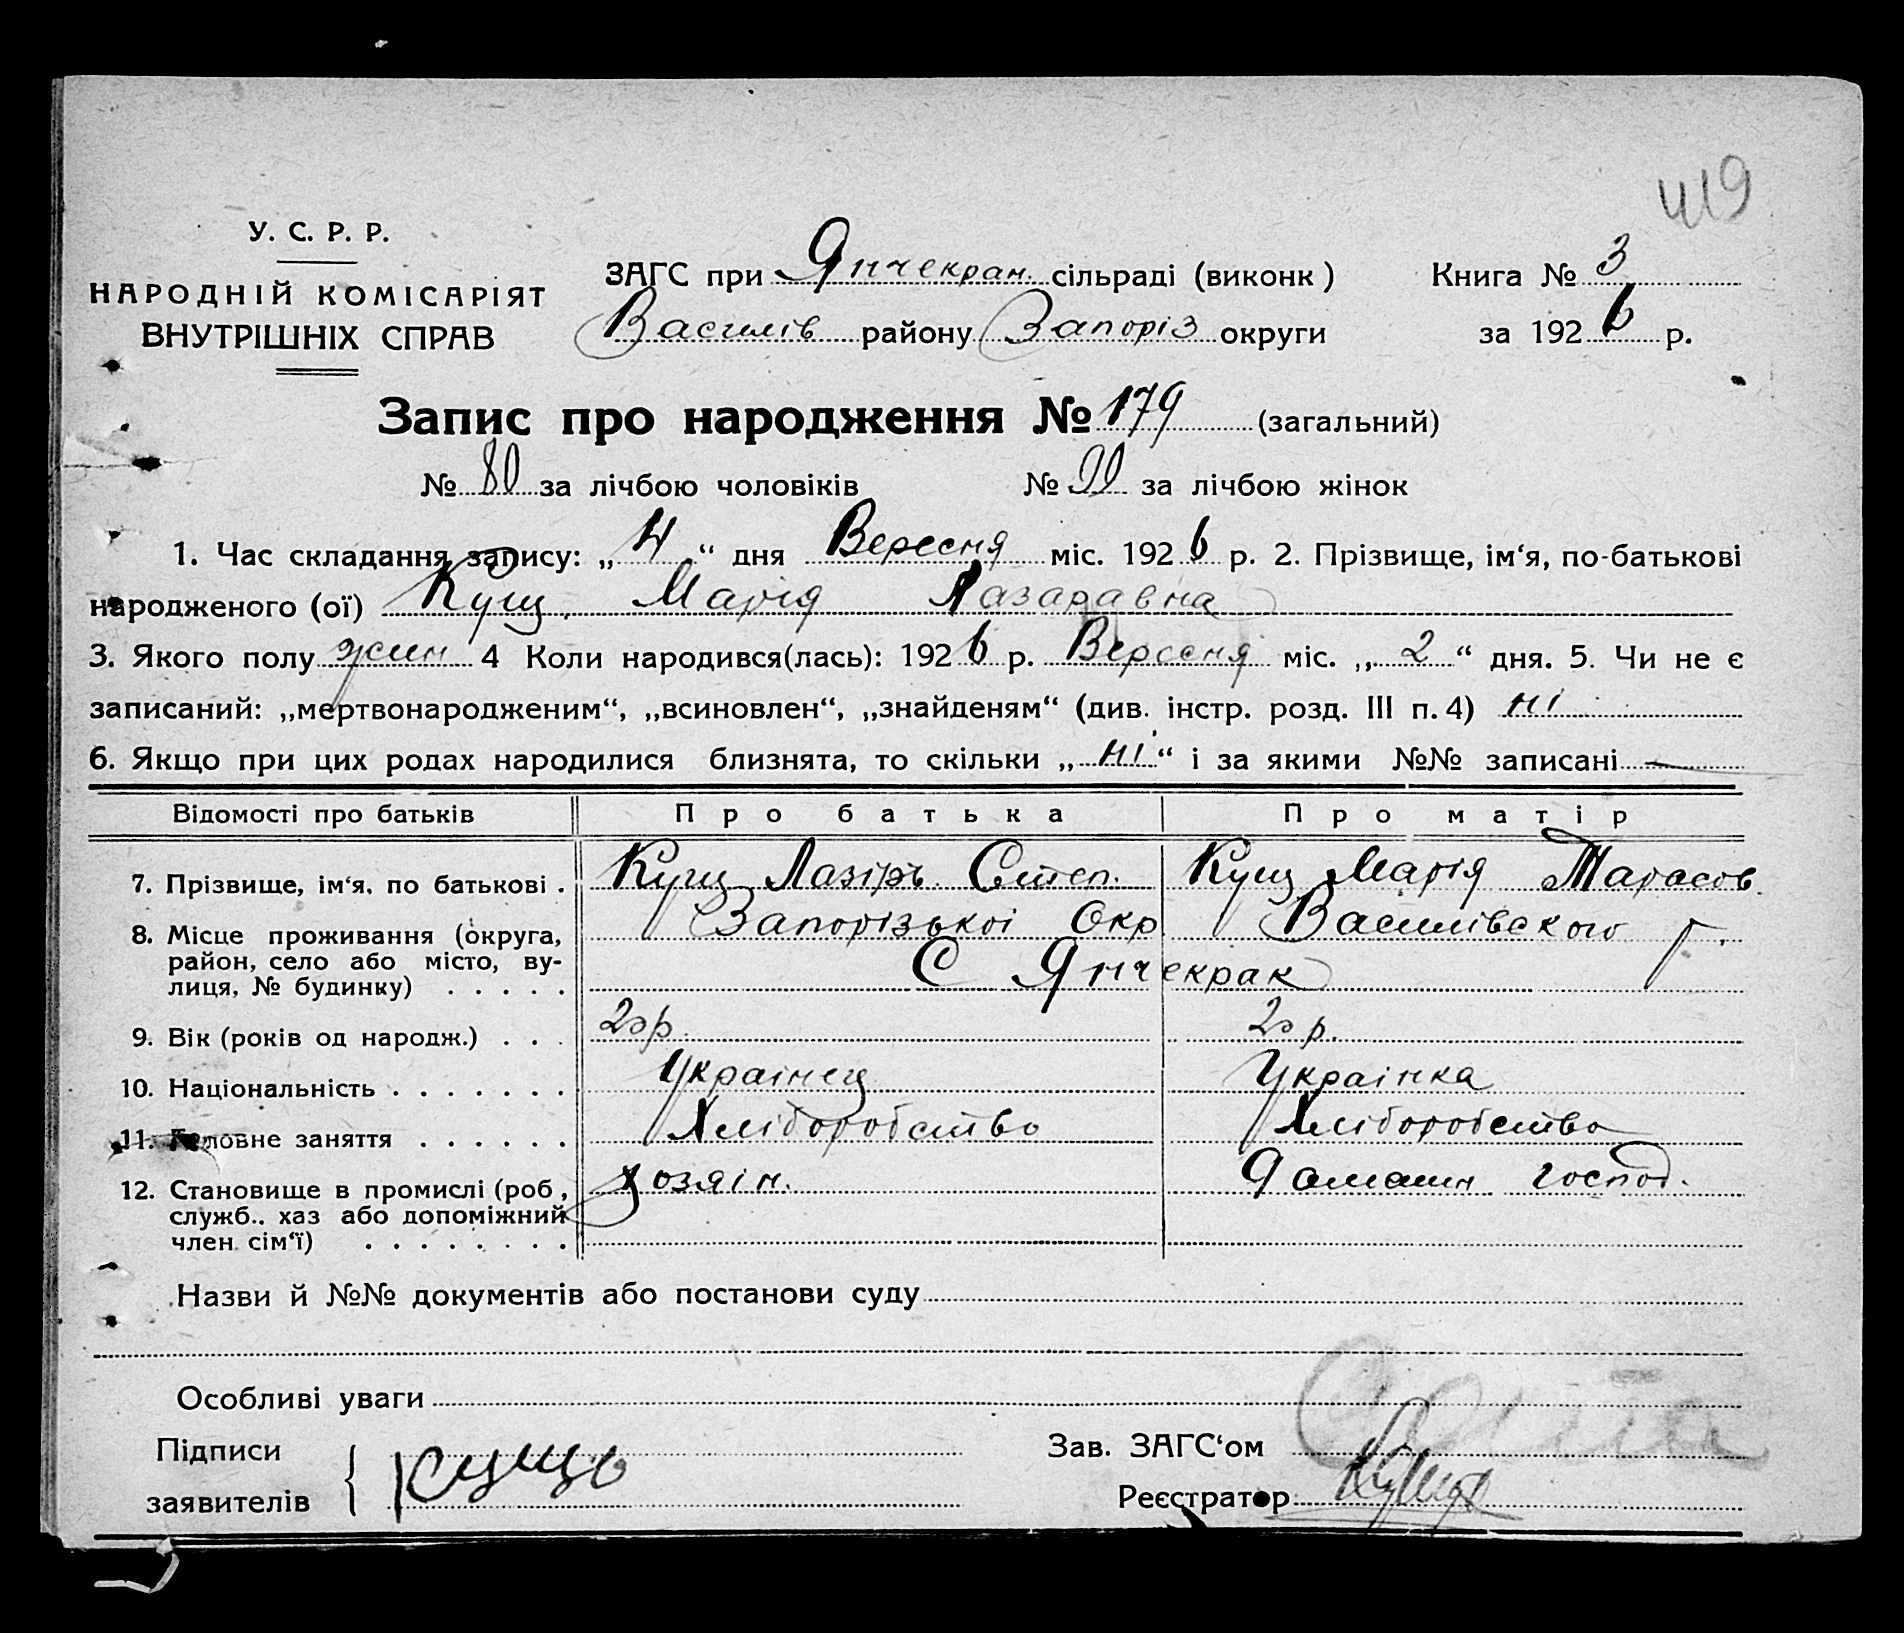 419
У. С. Р. Р.
НАРОДНІЙ КОМІСАРІЯТ
ВНУТРІШНІХ СПРАВ
ЗАГС при Янчекран. сільраді (виконк) Книга № 3
Василів району Запоріз округи за 1926 р.
Запис про народження № 179 (загальний)
№ 80 за лічбою чоловіків № 99 за лічбою жінок
1. Час складання запису: „4“ дня Вересня міс. 1926 р. 2. Прізвище, ім‘я, по-батькові
народженого (ої) Кущ Марія Лазаравна
3. Якого полу жин 4 Коли народився(лась): 1926 р. Вересня міс. „2“ дня. 5. Чи не є
записаний: „мертвонародженим“, „всиновлен“, „знайденям“ (див. інстр. розд. III п. 4) ні
6. Якщо при цих родах народилися близнята, то скільки „ні“ і за якими №№ записані —
Відомості про батьків Про батька Про матір
7. Прізвище, ім‘я, по батькові . Кущ Лазірь Степ. Кущ Марія Тарасов.
8. Місце проживання (округа, Запорізькоі Окр Василівского
район, село або місто, ву- С Янчекрак
лиця, № будинку) . . . . .
9. Вік (років од народж.) . . . 20 р. 20 р.
10. Національність . . . . . . . Украінец Украінка
11. Головне заняття . . . . . . Хліборобство Хліборобство
12. Становище в промислі (роб, хозяін. Домашн господ.
служб.. хаз або допоміжний
член сім‘ї) . . . . . . . .
Назви й №№ документів або постанови суду
Особливі уваги
Підписи Зав. ЗАГС‘ом
заявителів Кущь Реєстратор